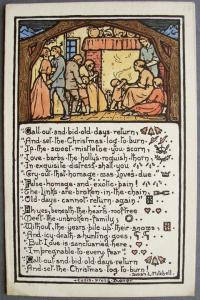 Call out and bid old days return,
And set the Christmas log to burn,
If the sweet mistletoe you scorn,
Love barbs the holly's roguish thorn,
In exquisite distress shall you
Cry out that homage was Love's due.
False homage and exotic pain!
The links are broken in the chain,
Old days cannot return again!
Ah yes, beneath the heart's rooftree
Meet the unbroken family;
Without, the years pile up their snows,
And icy death a-hunting goes;
But Love is sanctuaried here,
Impregnable to every fear.
Call out and bid old days return
And set the Christmas log to burn.
Susan L. Mitchell.